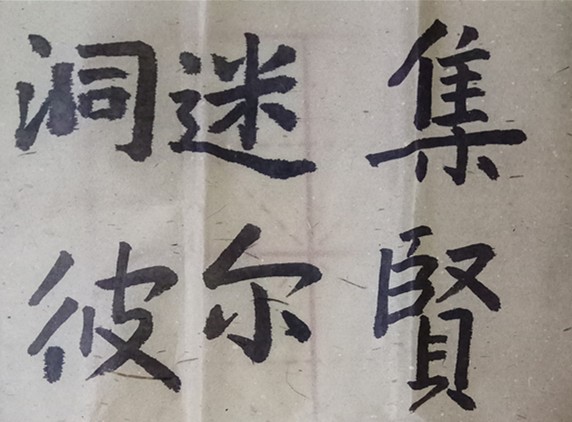 集賢
迷尔
洞彼